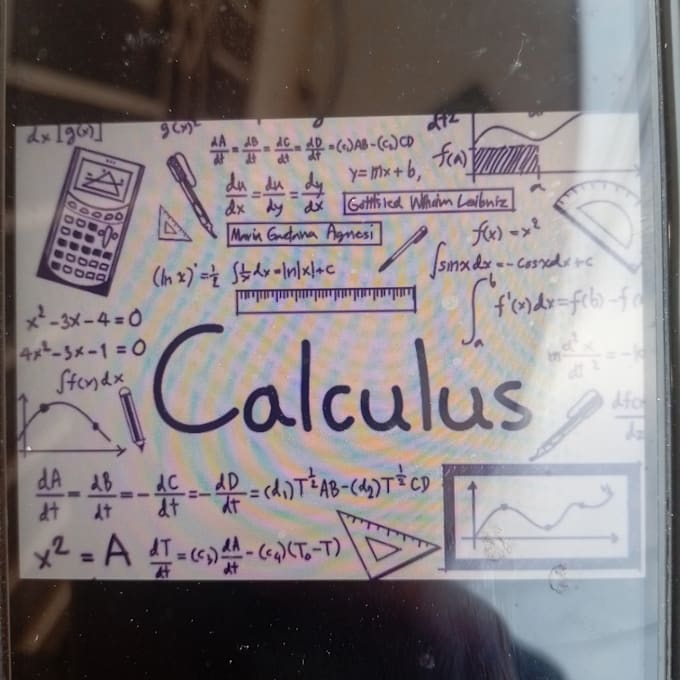 dx [g(x)]
g(x)²
dt²
dA/dt = dB/dt = dC/dt = dD/dt = (c₁)AB-(c₂)CD
f(a)
y=mx+b,
du/dx = du/dy = dy/dx
Gottfried Wilhelm Leibniz
a
Maria Agnesi
f(x) = x²
(ln x)' = 1/x ∫1/x dx = ln|x|+c
∫sinx dx = -cosx dx + c
∫ₐᵇ f'(x)dx = f(b) - f(a
x² - 3x - 4 = 0
4x² - 3x - 1 = 0
∫f(x)dx
Calculus
dA/dt = dB/dt = - dC/dt = - dD/dt = (d₁)T^½ AB-(d₂)T^½ CD
x² = A
dT/dt = (c₃) dA/dt - (c₄)(T₀-T)